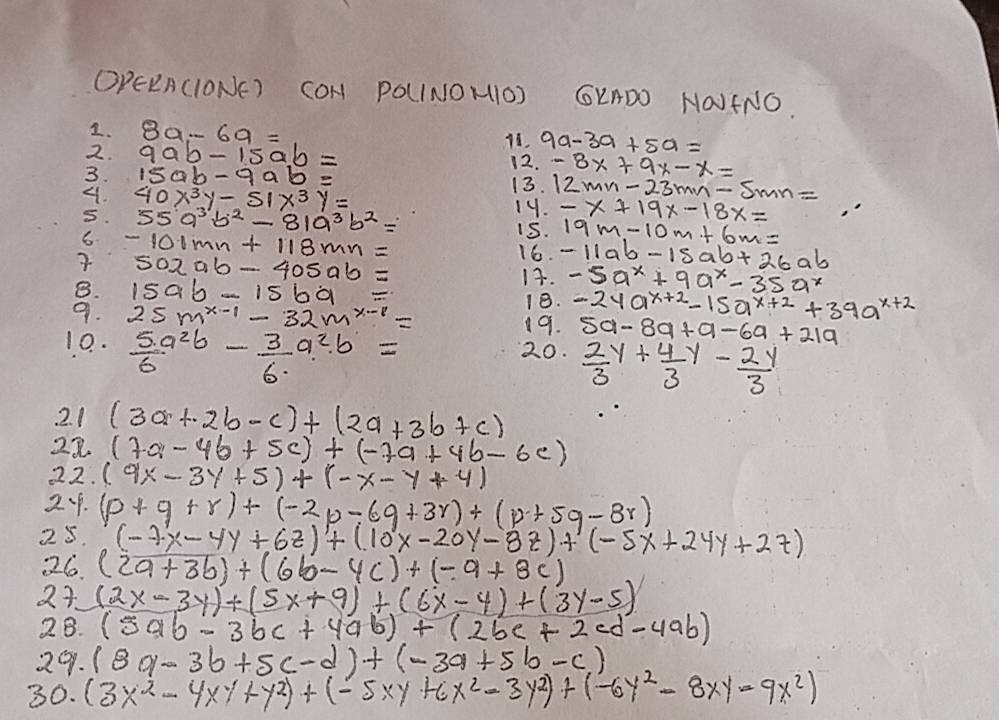 OPERACIONES CON POLINOMIOS GRADO NOVENO.
1. 8a - 6a =
2. 9ab - 15ab =
3. 15ab - 9ab =
4. 40x³y - 51x³y =
5. 55a³b² - 81a³b² =
6 -101mn + 118mn =
7 502ab - 405ab =
8. 15ab - 15ba =
9. 25m^(x-1) - 32m^(x-1) =
10. 5/6 a²b - 3/6 a²b =
11. 9a - 3a + 5a =
12. -8x + 9x - x =
13. 12mn - 23mn - 5mn =
14. -x + 19x - 18x =
15. 19m - 10m + 6m =
16. -11ab - 15ab + 26ab
17. -5a^x + 9a^x - 35a^x
18. -24a^(x+2) - 15a^(x+2) + 39a^(x+2)
19. 5a - 8a + a - 6a + 21a
20. 2/3 y + 4/3 y - 2y/3
21 (3a + 2b - c) + (2a + 3b + c)
22. (7a - 4b + 5c) + (-7a + 4b - 6c)
22. (9x - 3y + 5) + (-x - y + 4)
24. (p + q + r) + (-2p - 6q + 3r) + (p + 5q - 8r)
25. (-7x - 4y + 6z) + (10x - 20y - 8z) + (-5x + 24y + 2z)
26. (2a + 3b) + (6b - 4c) + (-a + 8c)
27 (2x - 3y) + (5x + 9) + (6x - 4) + (3y - 5)
28. (5ab - 3bc + 4ab) + (2bc + 2cd - 4ab)
29. (8a - 3b + 5c - d) + (-3a + 5b - c)
30. (3x² - 4xy + y²) + (-5xy + 6x² - 3y²) + (-6y² - 8xy - 9x²)